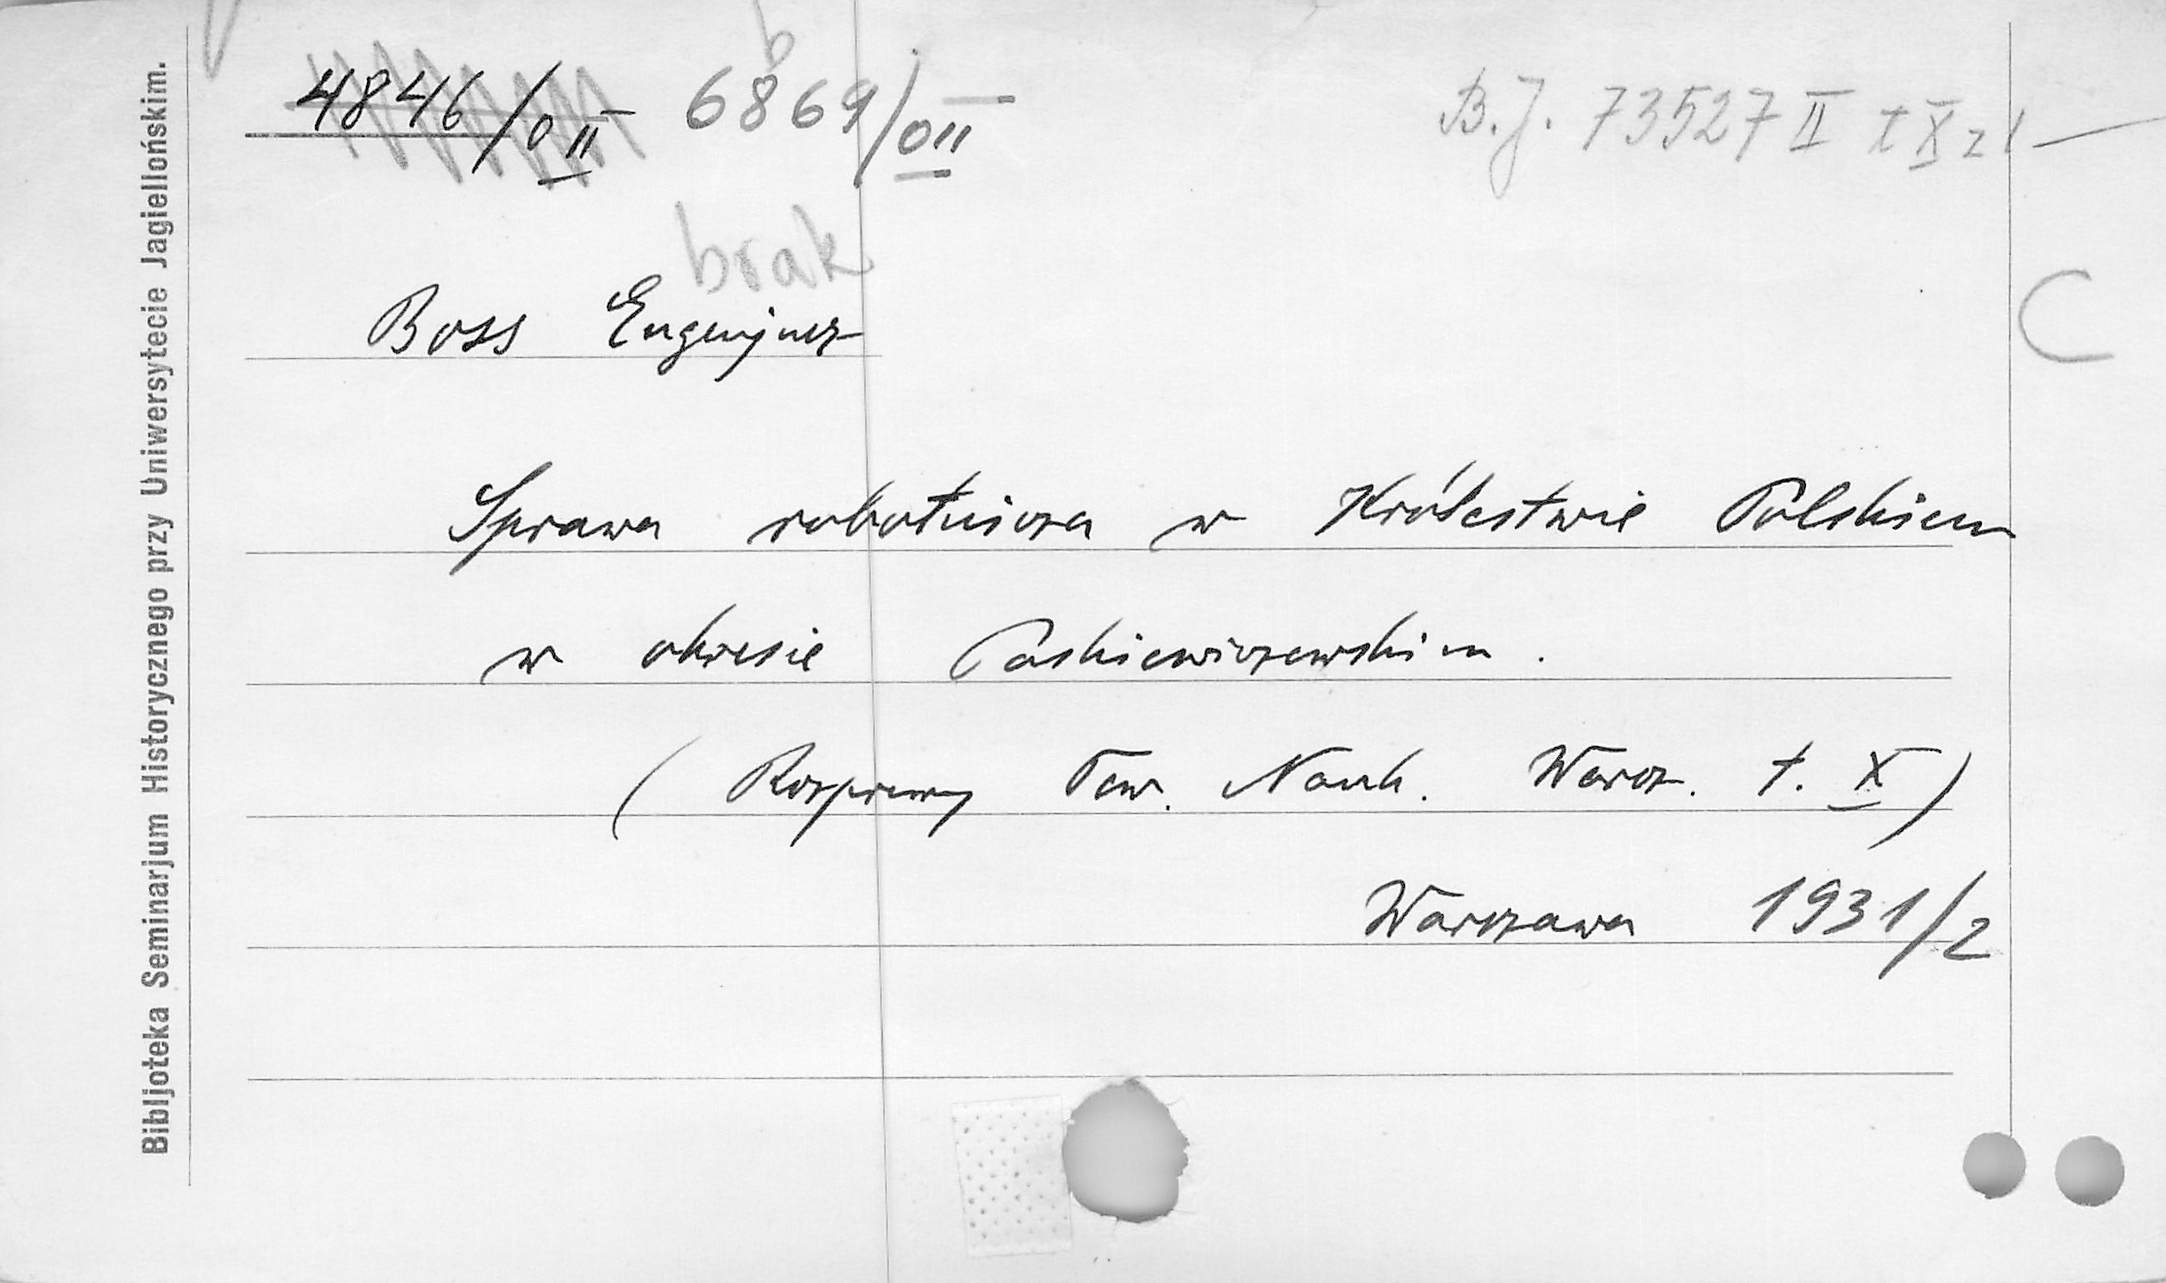 Bibljoteka Seminarjum Historycznego przy Uniwersytecie Jagiellońskim.
b
4846/0 II 6869/0 II B.J. 73527 II t X z 1
brak
C
Boss Eugenjusz
Sprawa robotnicza w Królestwie Polskiem
w okresie Paskiewiczowskim.
(Rozprawy Tow. Nauk. Warsz. t. X)
Warszawa 1931/2